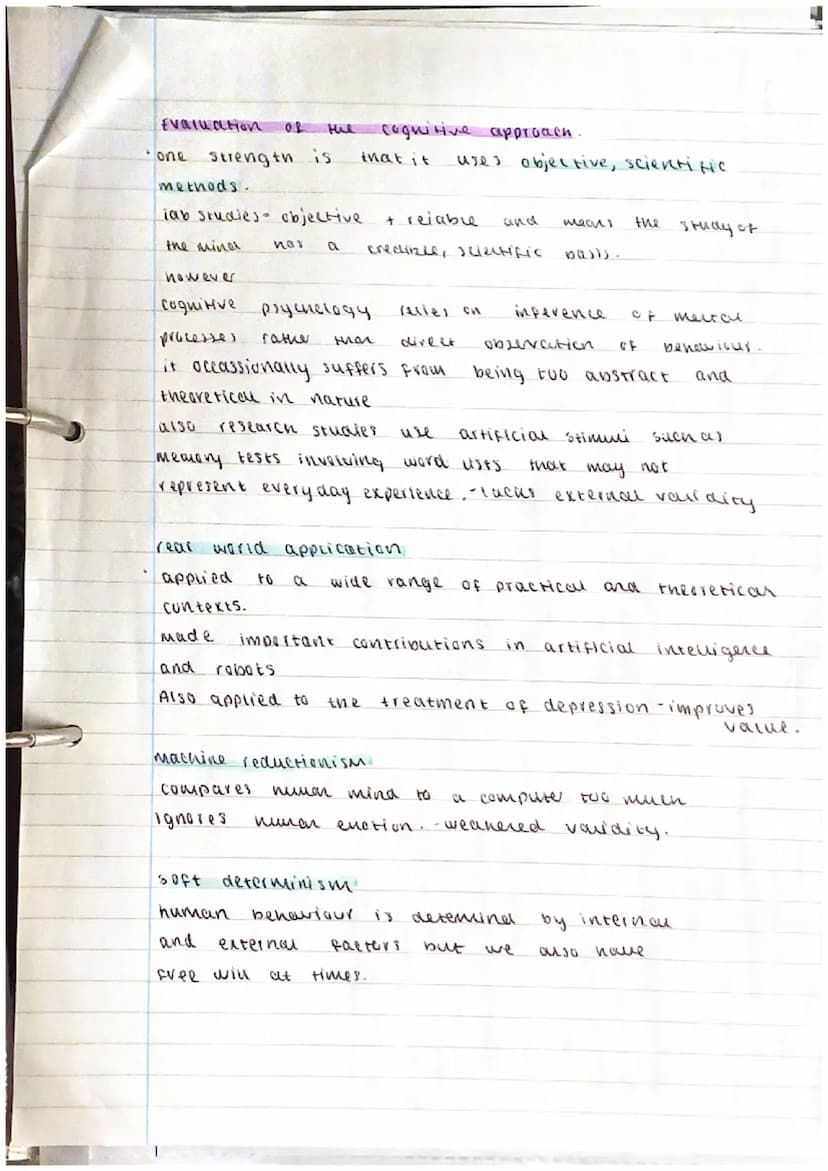 Evaluation of the cognitive approach.
· one strength is that it uses objective, scientific
methods.
lab studies = objective + reliable and means the study of
the mind has a credible, scientific basis.
however
cognitive psychology relies on inference of mental
processes rather than direct observation of behaviour.
it occassionally suffers from being too abstract and
theoretical in nature
also research studies use artificial stimuli such as
memory tests involving word lists that may not
represent everyday experience. - lacks external validity
real world application
· applied to a wide range of practical and theoretical
contexts.
made important contributions in artificial intelligence
and robots
Also applied to the treatment of depression - improves
value.
machine reductionism
compares human mind to a computer too much
ignores human emotion. - weakened validity.
soft determinism
human behaviour is determind by internal
and external factors but we also have
free will at times.